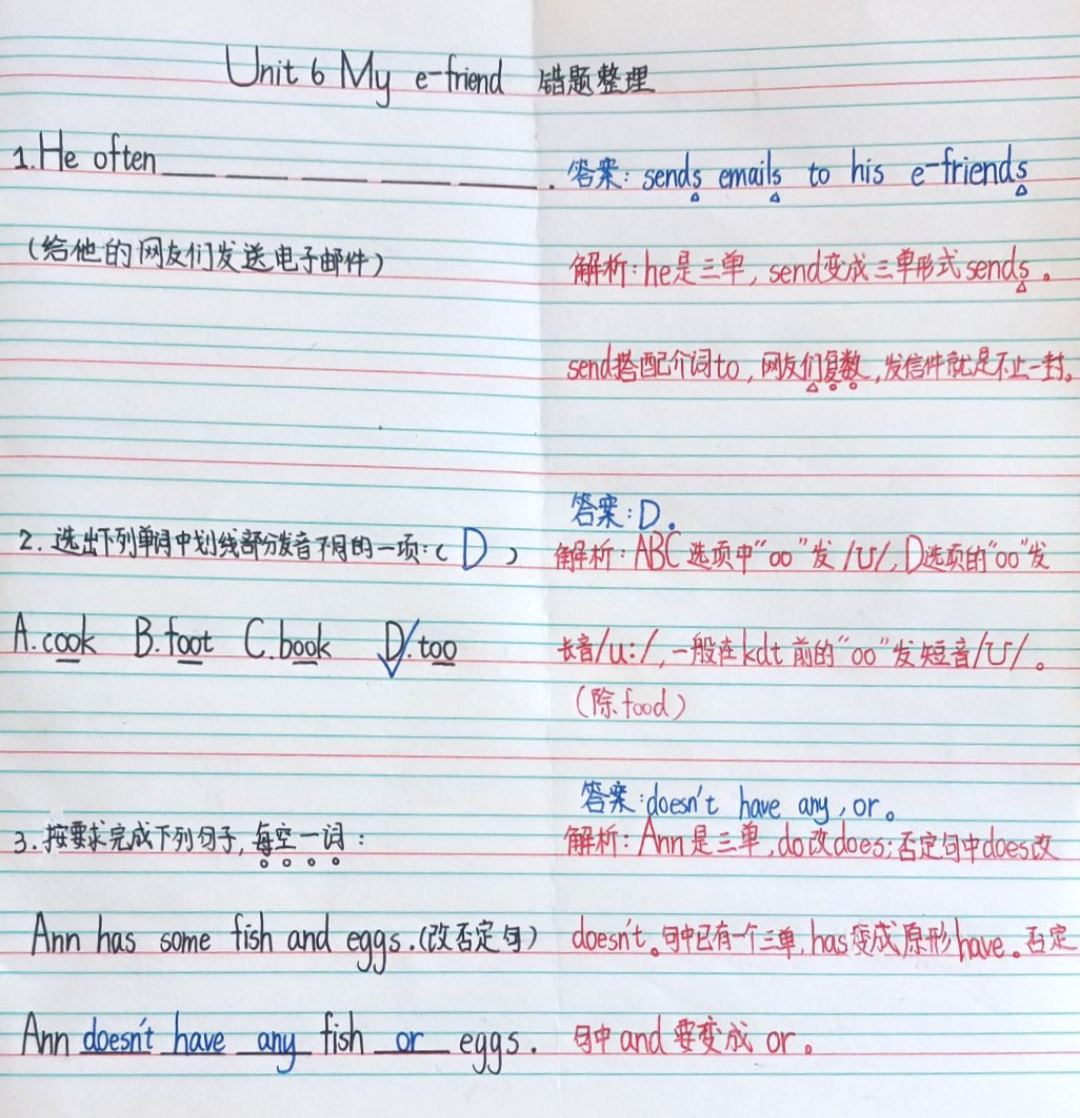 Unit 6 My e-friend 错题整理
1. He often ___ ___ ___ ___ ___.
答案: sends emails to his e-friends
(给他的网友们发送电子邮件)
解析: he是三单, send变成三单形式sends。
send搭配介词to, 网友们复数, 发信件就是不止一封。
答案: D。
2. 选出下列单词中划线部分发音不同的一项: ( D )
解析: ABC选项中“oo”发/ʊ/, D选项的“oo”发
A. cook B. foot C. book D. too
长音/u:/, 一般在kdt前的“oo”发短音/ʊ/。
(除food)
答案: doesn't have any, or。
3. 按要求完成下列句子, 每空一词:
解析: Ann是三单, do改does; 否定句中does改
Ann has some fish and eggs. (改否定句)
doesn't。句中已有一个三单, has变成原形have。否定
Ann doesn't have any fish or eggs.
句中and要变成or。